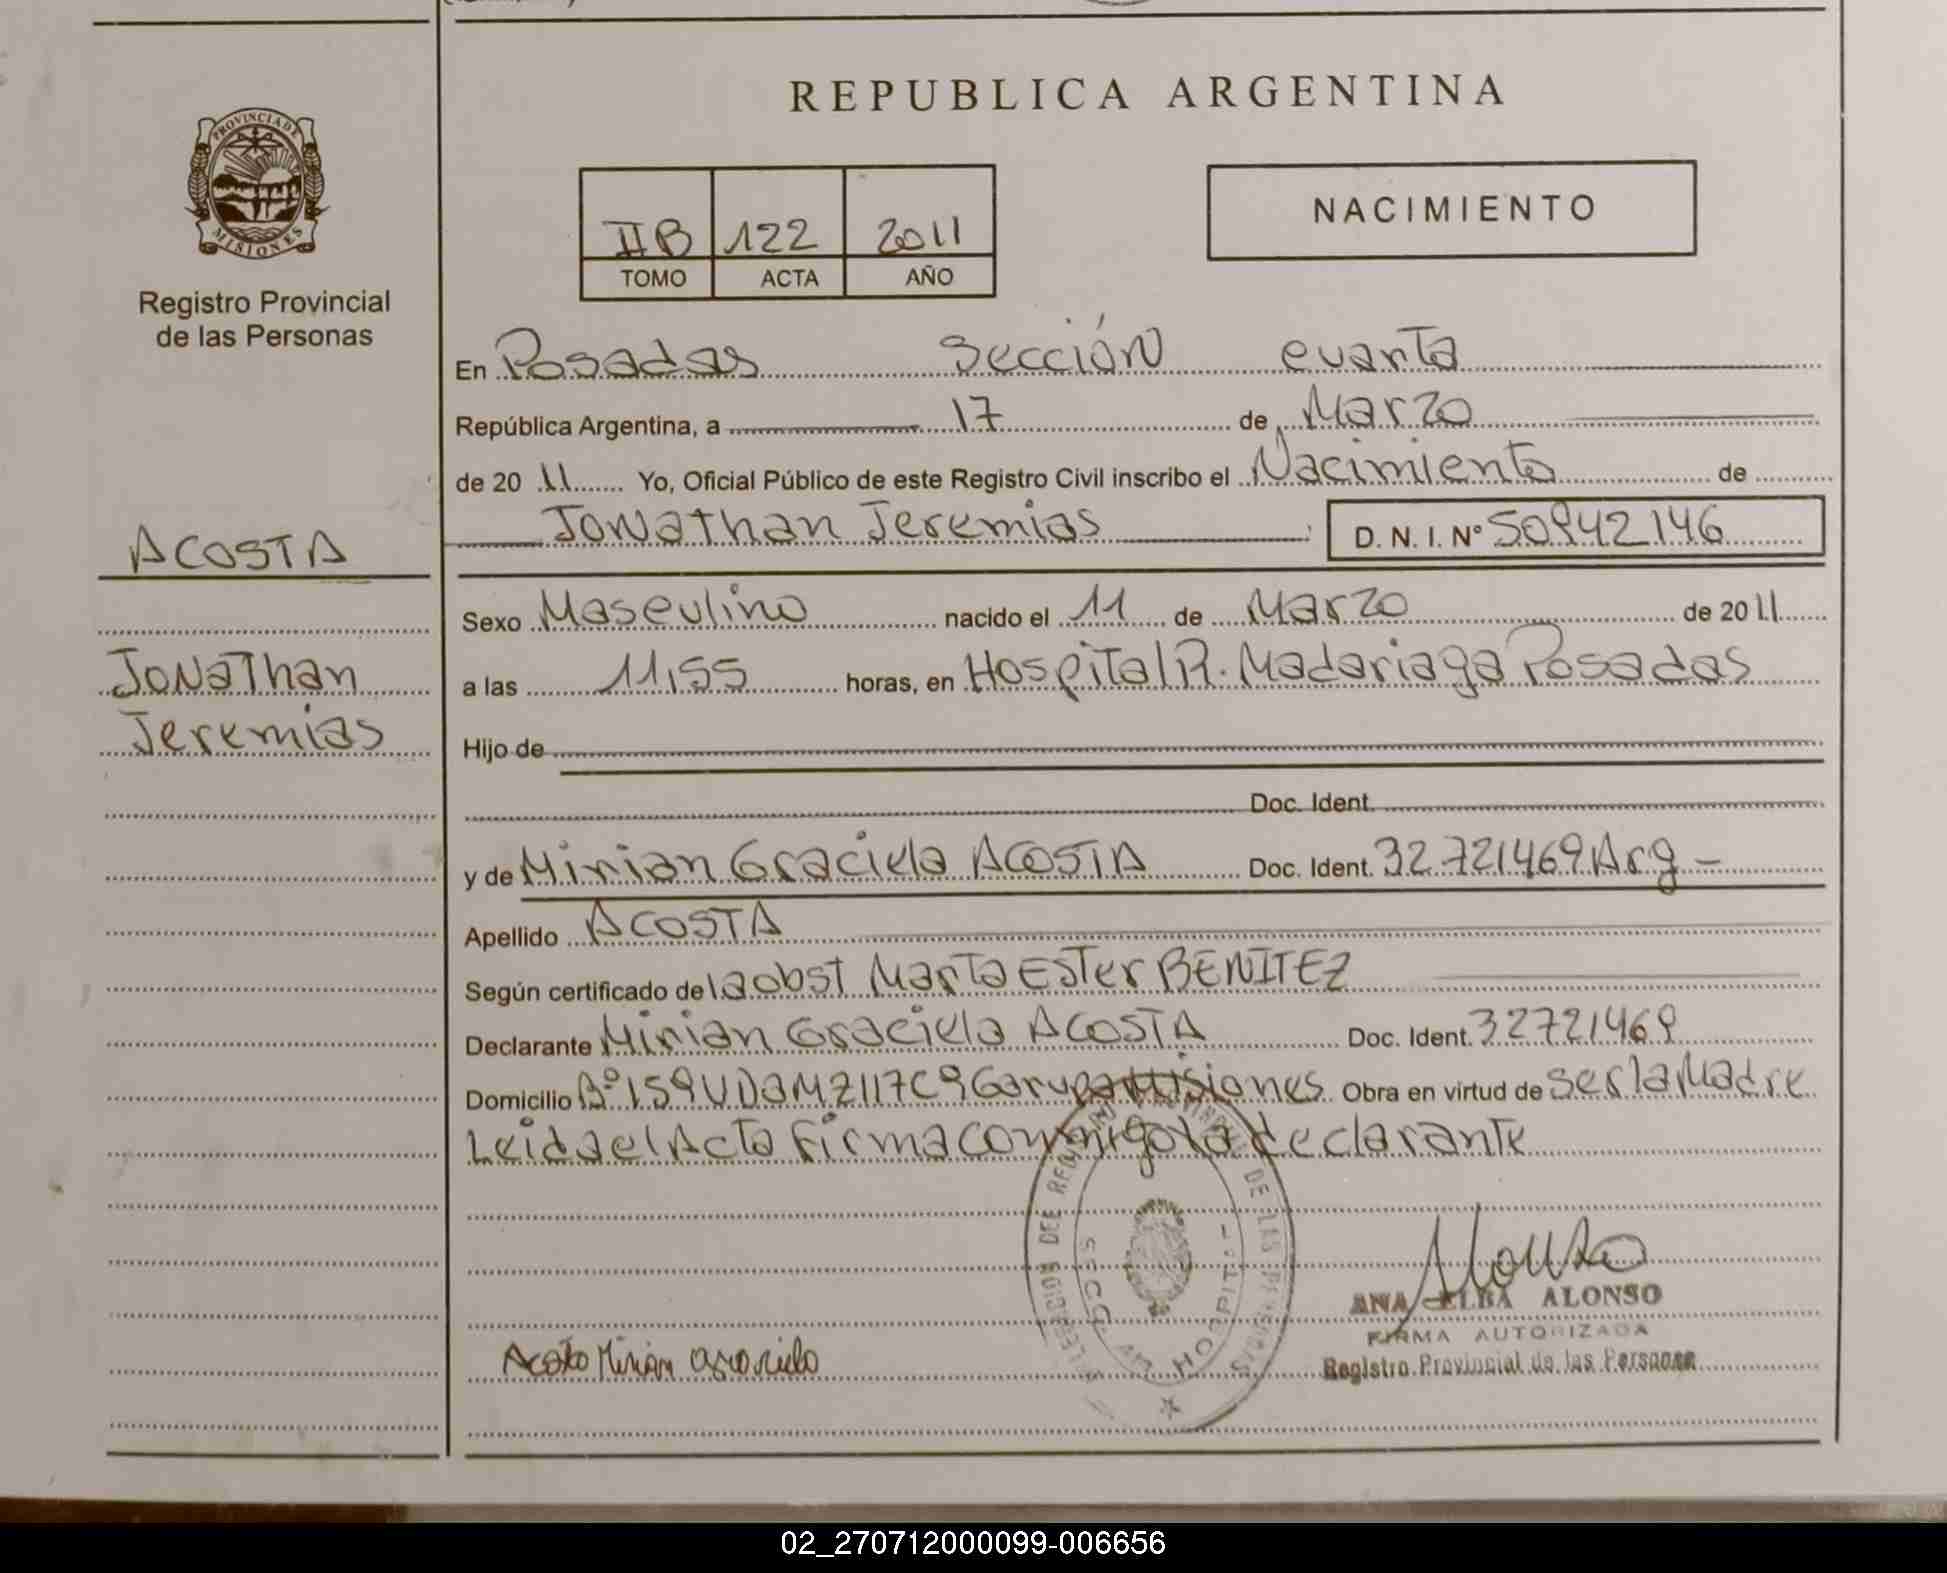 REPUBLICA ARGENTINA
PROVINCIA DE
MISIONES
Registro Provincial
de las Personas
IIB 122 2011
TOMO ACTA AÑO
NACIMIENTO
En Posadas Sección cuarta
República Argentina, a 17 de Marzo
de 2011 Yo, Oficial Público de este Registro Civil inscribo el Nacimiento de
Jonathan Jeremias D. N. I. Nº 50942146
ACOSTA
Jonathan
Jeremias
Sexo Masculino nacido el 11 de Marzo de 2011
a las 11,55 horas, en Hospital R. Madariaga Posadas
Hijo de
Doc. Ident.
y de Mirian Graciela ACOSTA Doc. Ident. 32.721469 Arg -
Apellido ACOSTA
Según certificado de la obst Marta Ester BENITEZ
Declarante Mirian Graciela ACOSTA Doc. Ident. 32721469
Domicilio Bº 159 U D a MZ 117 C 9 Garupa Misiones Obra en virtud de ser la Madre
Leida el Acta firma conmigo la declarante
HOSPITAL
ANA ELBA ALONSO
FIRMA AUTORIZADA
Registro Provincial de las Personas
Acosta Mirian Graciela
02_270712000099-006656